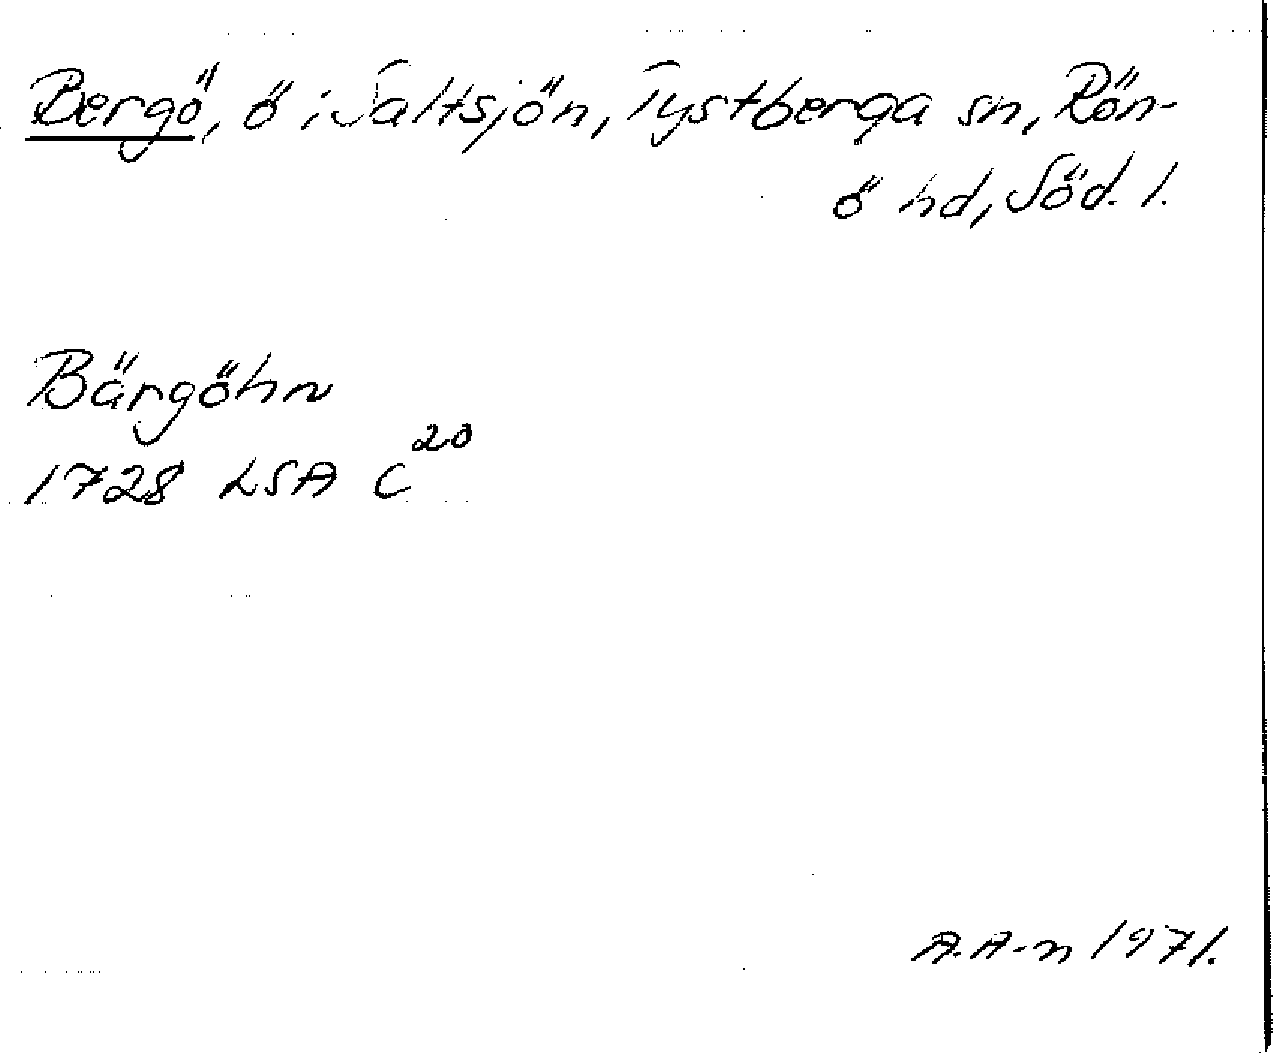 Bergö, ö i Saltsjön, Tystberga sn, Rön-
ö hd, Söd. l.
Bärgöhn
1728 LSA C²⁰
A.A-n 1971.